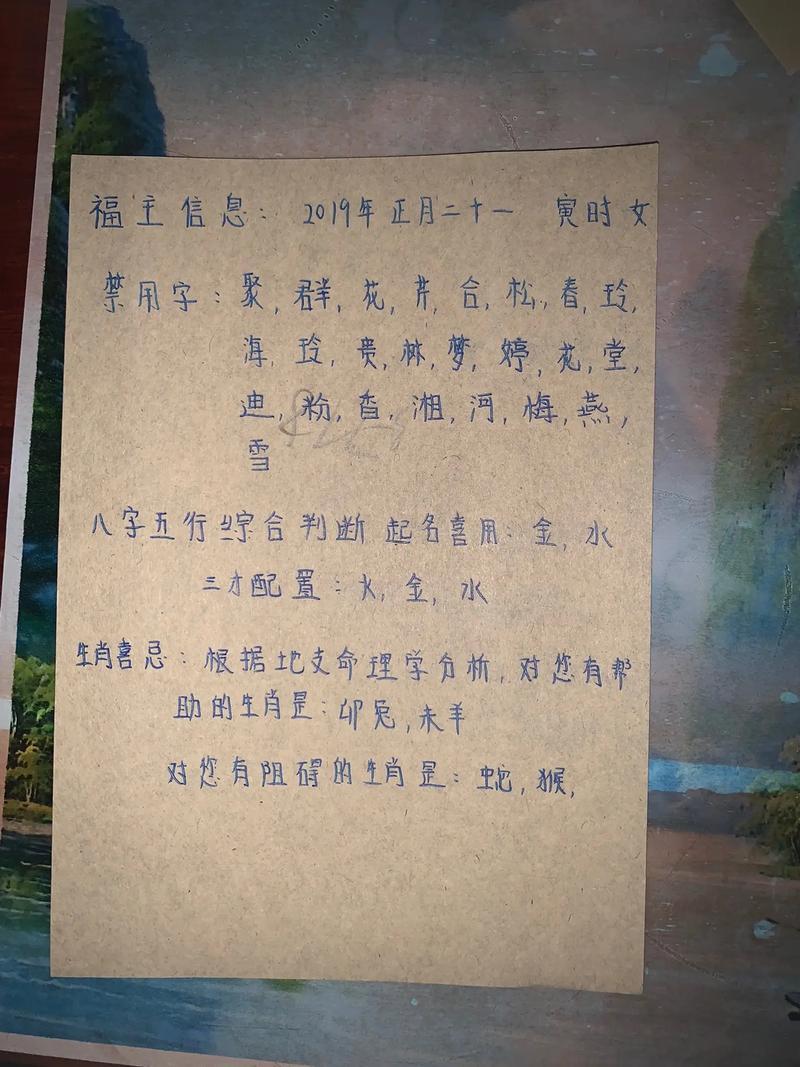 福主信息： 2019年 正月二十一 寅时 女
禁用字：聚，群，花，芹，合，松，春，玲，
海，玲，贵，林，梦，婷，花，堂，
迪，粉，香，湘，河，梅，燕，
雪
八字五行综合判断 起名喜用：金，水
三才配置：火，金，水
生肖喜忌：根据地支命理学分析，对您有帮
助的生肖是：卯兔，未羊
对您有阻碍的生肖是：蛇，猴，